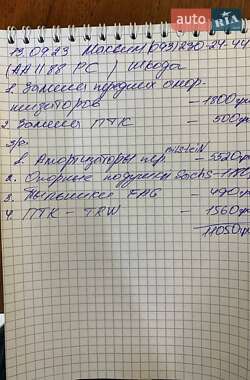 AUTO RIA
13.09.23 Максим (093) 230-24-44
(АА 1188 РС) Шкода
1. Замена передних амор-
тизаторов - 1800гр
2. Замена ПТК - 500гр
З/ч.
1. Амортизаторы пер. BILSTEIN - 5520гр
2. Опорные подушки Sachs -
3. Пыльники FAG - 490гр
4. ПТК - TRW - 1560гр
11050гр